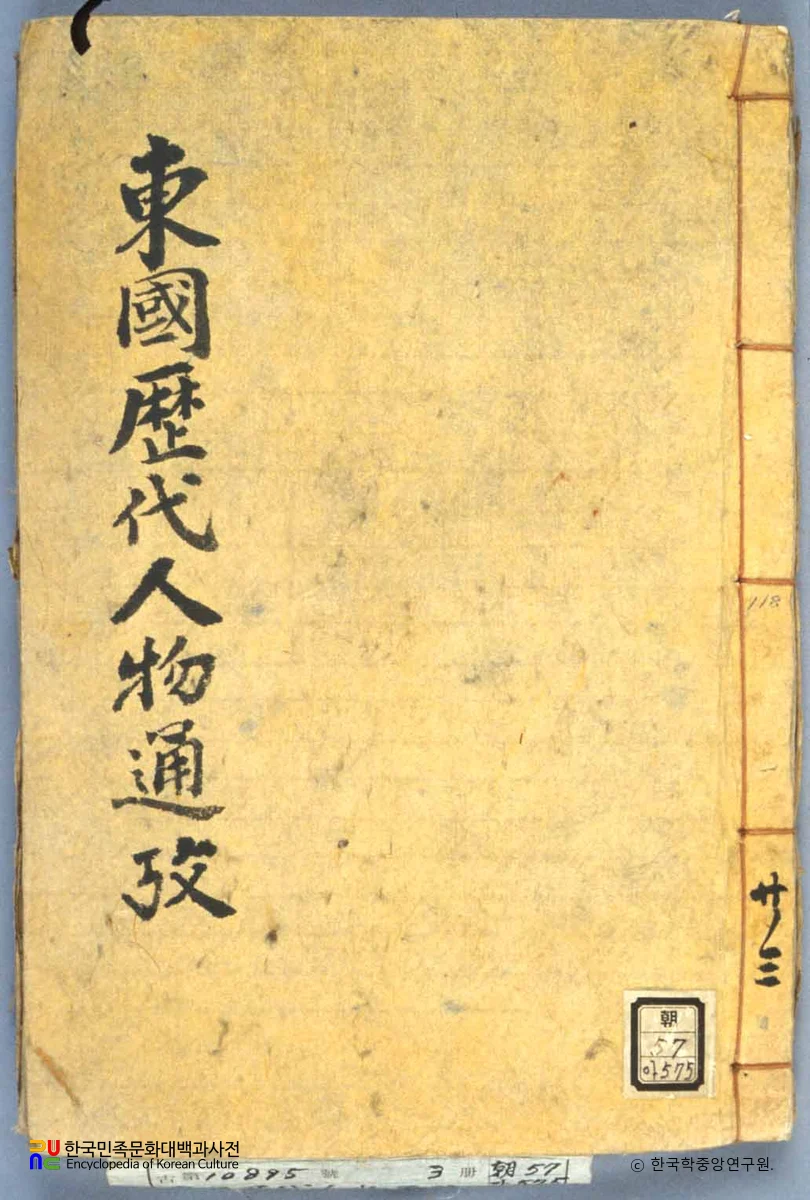 東國歴代人物通攷
118
共三
朝
57
아575
한국민족문화대백과사전
Encyclopedia of Korean Culture
10895 號 3 冊 朝57
© 한국학중앙연구원.